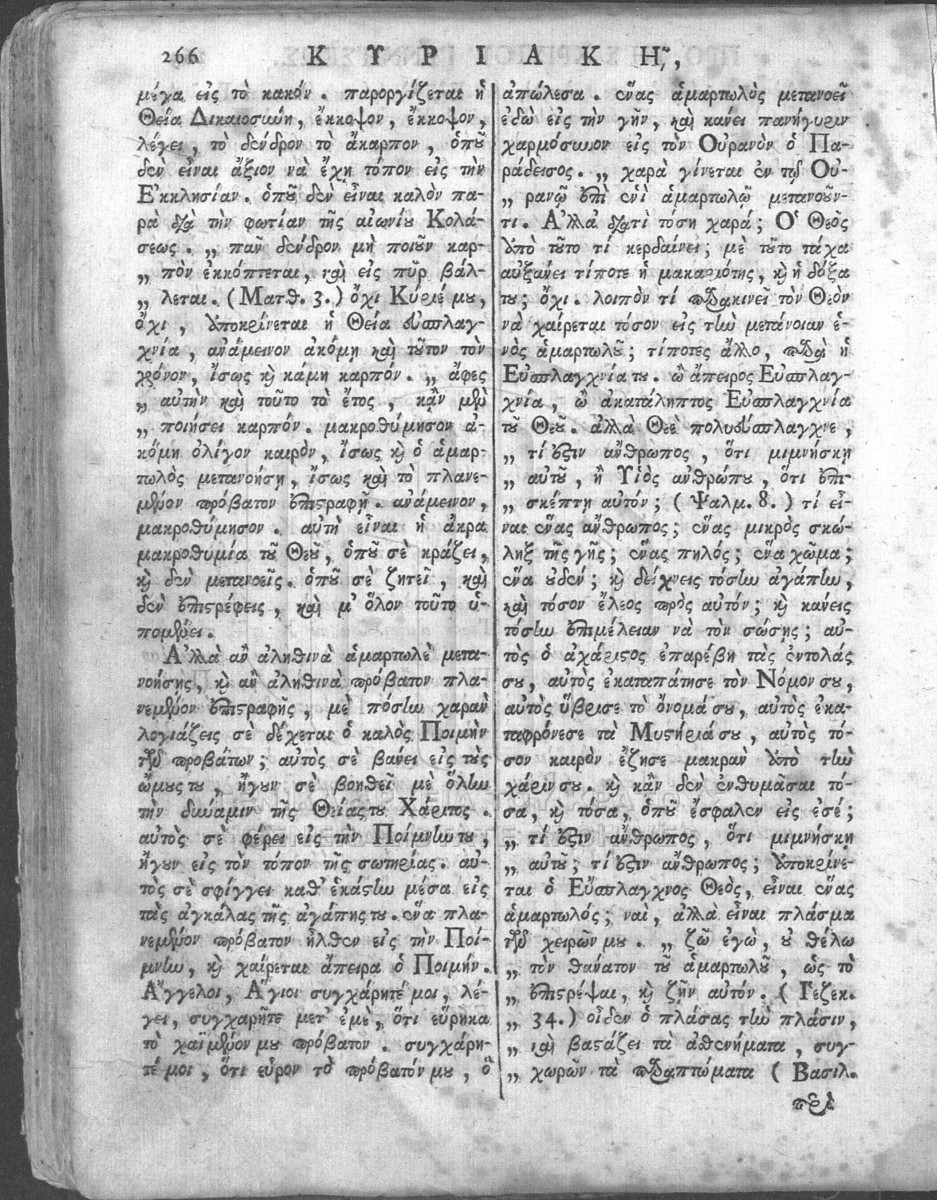 266 ΚΥΡΙΑΚΗ͂,
μέγα εἰς τὸ κακόν. παροργίζεται ἡ
Θεία Δικαιοσύνη, ἔκκοψον, ἔκκοψον,
λέγει, τὸ δένδρον τὸ ἄκαρπον, ὁποῦ
δὲν εἶναι ἄξιον νὰ ἔχῃ τόπον εἰς τὴν
Ἐκκλησίαν. ὁποῦ δὲν εἶναι καλὸν πα-
ρὰ διὰ τὴν φωτίαν τῆς αἰωνίου Κολά-
σεως. „ πᾶν δένδρον μὴ ποιοῦν καρ-
„ πὸν ἐκκόπτεται, καὶ εἰς πῦρ βάλ-
„ λεται. (Ματθ. 3.) ὄχι Κύριέ μου,
ὄχι, ὑποκρίνεται ἡ Θεία εὐσπλαγ-
χνία, ἀνάμεινον ἀκόμη καὶ τοῦτον τὸν
χρόνον, ἴσως καὶ κάμῃ καρπόν. „ ἄφες
„ αὐτὴν καὶ τοῦτο τὸ ἔτος, κἂν μὲν
„ ποιήσει καρπόν. μακροθύμησον ἀ-
κόμη ὀλίγον καιρὸν, ἴσως καὶ ὁ ἁμαρ-
τωλὸς μετανοήσῃ, ἴσως καὶ τὸ πλανε-
μένον πρόβατον ἐπιστραφῇ. ἀνάμεινον,
μακροθύμησον. αὐτὴ εἶναι ἡ ἄκρα
μακροθυμία τοῦ Θεοῦ, ὁποῦ σὲ κράζει,
καὶ δὲν μετανοεῖς. ὁποῦ σὲ ζητεῖ, καὶ
δὲν ἐπιστρέφεις, καὶ μ' ὅλον τοῦτο ὑ-
πομένει.
Ἀλλὰ ἂν ἀληθινὰ ἁμαρτωλὲ μετα-
νοήσῃς, καὶ ἂν ἀληθινὰ πρόβατον πλα-
νεμένον ἐπιστραφῇς, μὲ πόσην χαρὰν
λογιάζεις σὲ δέχεται ὁ καλὸς Ποιμὴν
τῶν προβάτων; αὐτὸς σὲ βάνει εἰς τοὺς
ὤμουςτου, ἤγουν σὲ βοηθεῖ μὲ ὅλην
τὴν δύναμιν τῆς Θείαςτου Χάριτος.
αὐτὸς σὲ φέρει εἰς τὴν Ποίμνηντου,
ἤγουν εἰς τὸν τόπον τῆς σωτηρίας. αὐ-
τὸς σὲ σφίγγει καθ' ἑκάστην μέσα εἰς
τὰς ἀγκάλας τῆς ἀγάπηςτου. ἕνα πλα-
νεμένον πρόβατον ἦλθεν εἰς τὴν Ποί-
μνην, καὶ χαίρεται ἄπειρα ὁ Ποιμήν.
Ἄγγελοι, Ἅγιοι συγχάρητέ μοι, λέ-
γει, συγχαρῆτε μετ' ἐμὲ, ὅτι εὕρηκα
τὸ χαϊμένον μου πρόβατον. συγχάρη-
τέ μοι, ὅτι εὗρον τὸ πρόβατόν μου, ὃ
ἀπώλεσα. ἕνας ἁμαρτωλὸς μετανοεῖ
ἐδὼ εἰς τὴν γῆν, καὶ κάνει πανήγυριν
χαρμόσυνον εἰς τὸν Οὐρανὸν ὁ Πα-
ράδεισος. „ χαρὰ γίνεται ἐν τῷ Οὐ-
„ ρανῷ ἐπὶ ἑνὶ ἁμαρτωλῷ μετανοοῦν-
τι. Ἀλλὰ διατί τόση χαρά; Ὁ Θεὸς
ἀπὸ τοῦτο τί κερδαίνει; μὲ τοῦτο τάχα
αὐξάνει τίποτε ἡ μακαριότης, καὶ ἡ δόξα
του; ὄχι. λοιπὸν τί παρακινεῖ τὸν Θεὸν
νὰ χαίρεται τόσον εἰς τὴν μετάνοιαν ἑ-
νὸς ἁμαρτωλοῦ; τίποτες ἄλλο, παρὰ ἡ
Εὐσπλαγχνίατου. ὢ ἄπειρος Εὐσπλαγ-
χνία, ὢ ἀκατάληπτος Εὐσπλαγχνία
τοῦ Θεοῦ. ἀλλὰ Θεὲ πολυεύσπλαγχνε,
„ τί ἐστιν ἄνθρωπος, ὅτι μιμνήσκῃ
„ αὐτοῦ, ἢ Υἱὸς ἀνθρώπου, ὅτι ἐπι-
„ σκέπτῃ αὐτόν; (Ψαλμ. 8.) τί εἶ-
ναι ἕνας ἄνθρωπος; ἕνας μικρὸς σκώ-
ληξ τῆς γῆς; ἕνας πηλός; ἕνα χῶμα;
ἕνα οὐδέν; καὶ δείχνεις τόσην ἀγάπην,
καὶ τόσον ἔλεος πρὸς αὐτόν; καὶ κάνεις
τόσην ἐπιμέλειαν νὰ τὸν σώσῃς; αὐ-
τὸς ὁ ἀχάριστος ἐπαρέβη τὰς ἐντολάς
σου, αὐτὸς ἐκαταπάτησε τὸν Νόμον σου,
αὐτὸς ὕβρισε τὸ ὄνομάσου, αὐτὸς ἐκα-
ταφρόνεσε τὰ Μυστήριάσου, αὐτὸς τό-
σον καιρὸν ἔζησε μακρὰν ἀπὸ τὴν
χάρινσου. καὶ κἂν δὲν ἐνθυμᾶσαι τό-
σα, καὶ τόσα, ὁποῦ ἔσφαλεν εἰς ἐσέ;
„ τί ἐστιν ἄνθρωπος, ὅτι μιμνήσκῃ
„ αὐτοῦ; τί ἐστιν ἄνθρωπος; ὑποκρίνε-
ται ὁ Εὔσπλαγχνος Θεὸς, εἶναι ἕνας
ἁμαρτωλός; ναὶ, ἀλλὰ εἶναι πλάσμα
τῶν χειρῶν μου. „ ζῶ ἐγὼ, οὐ θέλω
„ τὸν θάνατον τοῦ ἁμαρτωλοῦ, ὡς τὸ
„ ἐπιστρέψαι, καὶ ζῇν αὐτόν. (Ἰεζεκ.
„ 34.) οἶδεν ὁ πλάσας τὴν πλάσιν,
„ καὶ βαστάζει τὰ ἀσθενήματα, συγ-
„ χωρῶν τὰ παραπτώματα (Βασιλ.